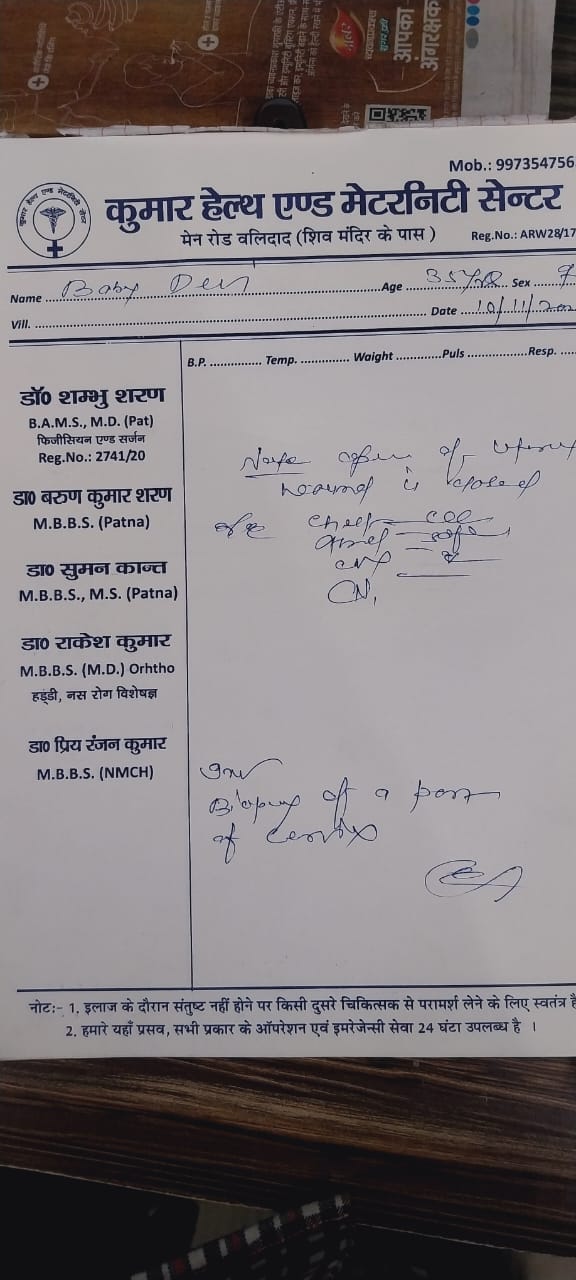 आपका
अंगरक्षक
Mob.: 997354756
कुमार हेल्थ एण्ड मेटरनिटी सेन्टर
मेन रोड वलिदाद (शिव मंदिर के पास)
Reg.No.: ARW28/17
Name Baby Devi Age 35 Sex
Vill. Date 10/11/
B.P. Temp. Waight Puls Resp.
डॉ० शम्भु शरण
B.A.M.S., M.D. (Pat)
फिजीसियन एण्ड सर्जन
Reg.No.: 2741/20
डा० बरुण कुमार शरण
M.B.B.S. (Patna)
डा० सुमन कान्त
M.B.B.S., M.S. (Patna)
डा० राकेश कुमार
M.B.B.S. (M.D.) Orhtho
हड्डी, नस रोग विशेषज्ञ
डा० प्रिय रंजन कुमार
M.B.B.S. (NMCH)
of
is closed
Chest
Biopsy of a
of cervix
नोटः- 1. इलाज के दौरान संतुष्ट नहीं होने पर किसी दुसरे चिकित्सक से परामर्श लेने के लिए स्वतंत्र है
2. हमारे यहाँ प्रसव, सभी प्रकार के ऑपरेशन एवं इमरेजेन्सी सेवा 24 घंटा उपलब्ध है ।